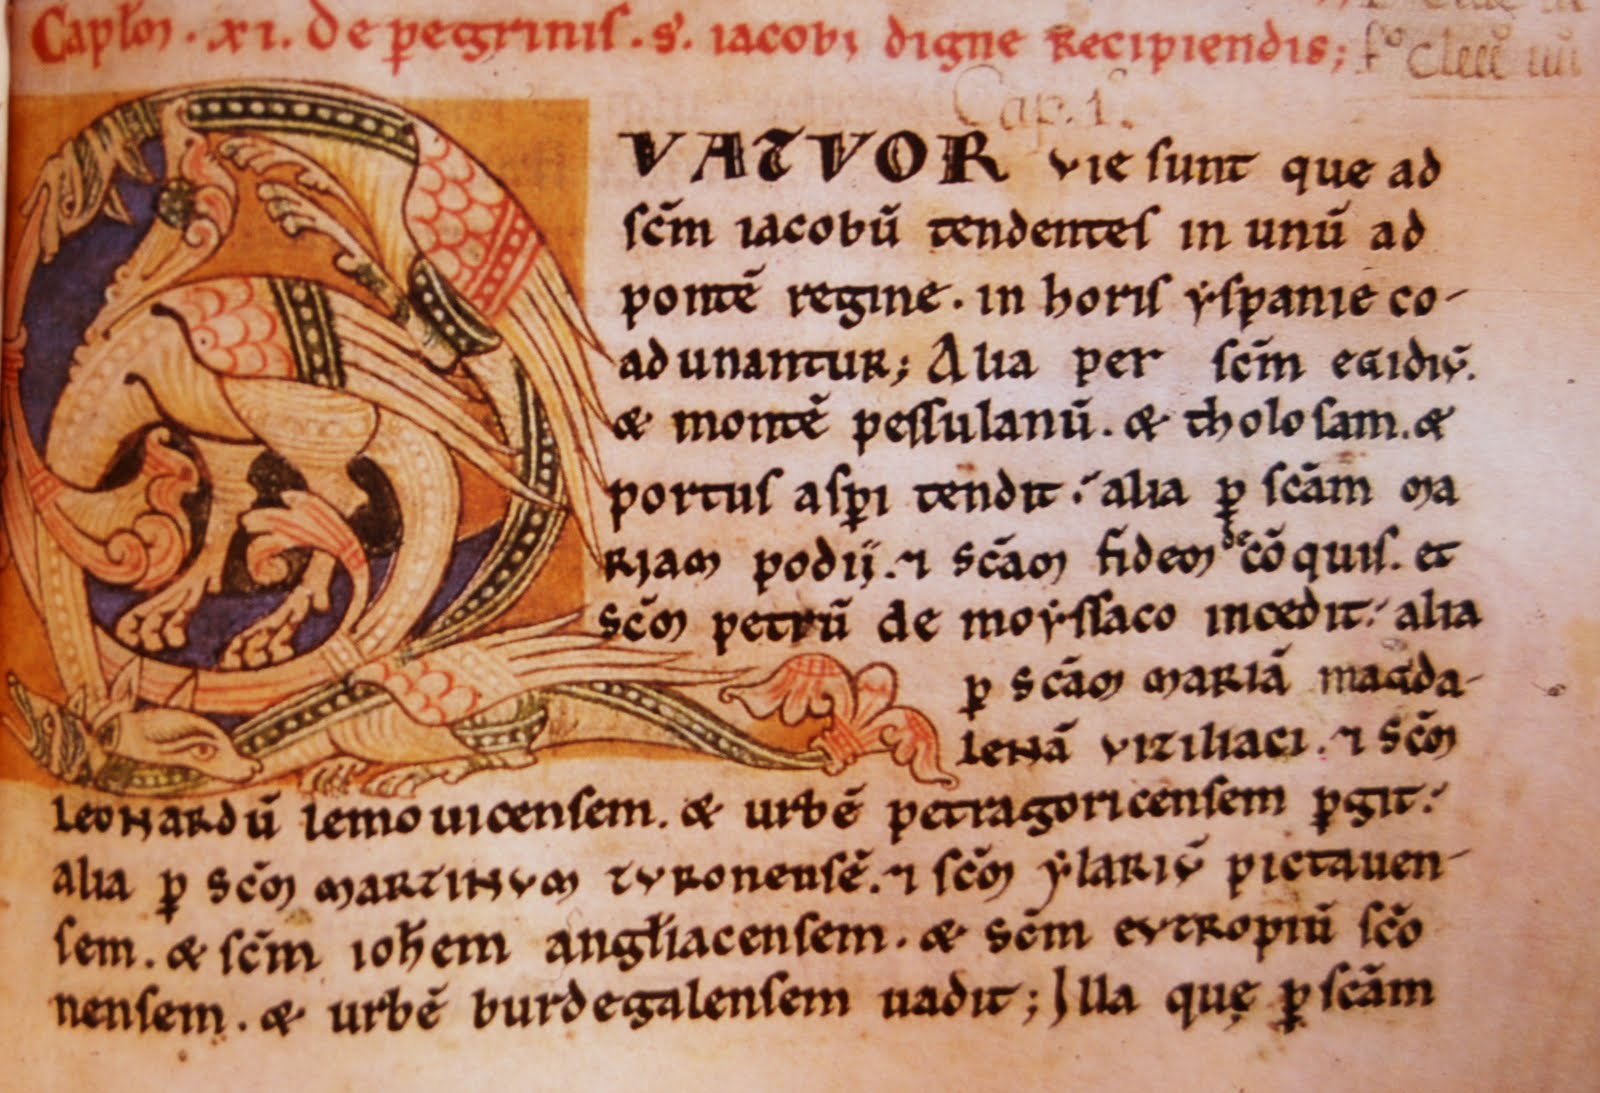 Capłm̄ . xi. De ꝑegrinis . s̄. iacobi digne recipiendis;
Cap. 1.
QVATVOR vie sunt que ad
sc̄m iacobū tendentes in unū ad
pontē regine . in horis ẏspanie co-
adunantur; Alia per sc̄m egidiū.
& montē pessulanū . & tholosam . &
portus asꝑi tendit; alia ꝑ sc̄am ma
riam podij . ⁊ sc̄am fidem de cōquis . et
sc̄m petrū de moẏssaco incedit; alia
ꝑ sc̄am mariā magda-
lenā viziliaci . ⁊ sc̄m
leonardū lemouicensem . & urbē petragoricensem ꝑgit;
alia ꝑ sc̄m martinum turonensē . ⁊ sc̄m ẏlariū pictauen-
sem . & sc̄m ioħem angliacensem . & sc̄m eutropiū sc̄o
nensem . & urbē burdegalensem uadit; Illa quę ꝑ sc̄am